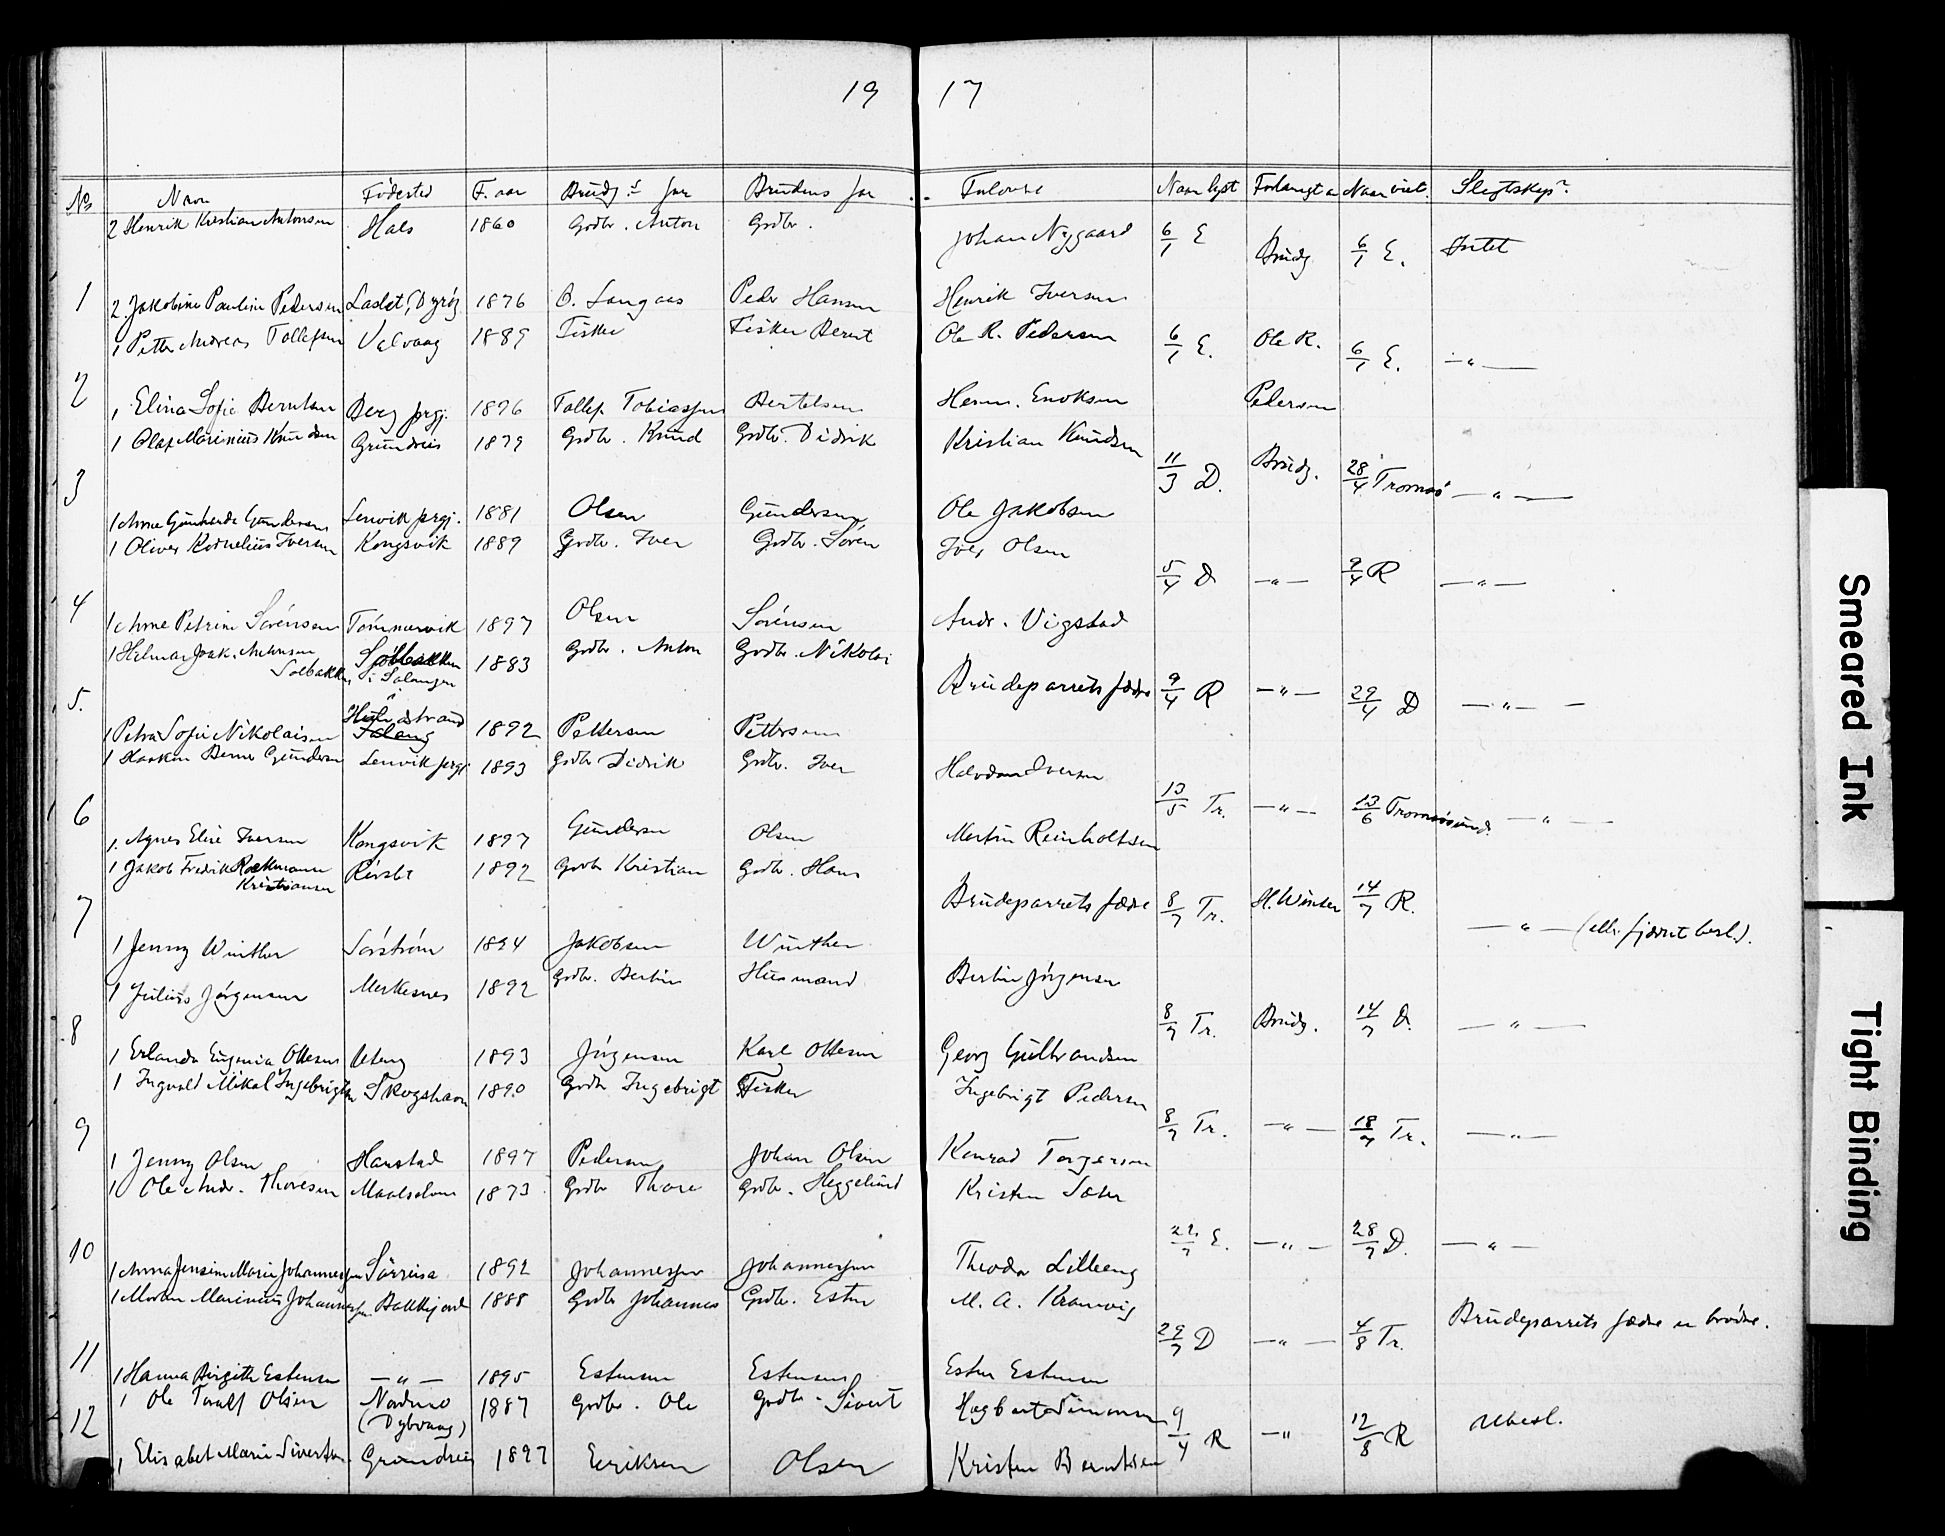 19 17
No Navn Födested F. aar Brudg.s far Brudens far Forlovere Naar lyst Forlangt av Naar viet Slegtskap?
2 Henrik Kristian Antonsen Hals 1860 Grdbr. Anton Grdbr. Johan Nygaard 6/1 E Brudg. 6/1 E. Intet
1
2 Jakobine Pauline Pedersen Laslet, Dyröy 1876 B. Langaas Peder Hansen Henrik Iversen
1 Petter Andreas Tollefsen Valvaag 1889 Fisker Fisker Bernt Ole R. Pedersen 6/1 E. Ole R. 6/1 E. — " —
2
1 Elina Sofie Berntsen Berg prgj. 1896 Tollef Tobiassen Bertelsen Herm. Enoksen Pedersen
1 Olaf Marinius Knudsen Grundreis 1879 Grdbr. Knud Grdbr. Didrik Kristian Knudsen 11/3 D. Brudg. 28/4 Tromsö — " —
3
1 Anne Gunharda Gundersen Lenvik prgj. 1881 Olsen Gundersen Ole Jakobsen
1 Oliver Kornelius Iversen Kongsvik 1889 Grdbr. Iver Grdbr. Sören Iver Olsen 5/4 D — " — 9/4 R — " —
4
1 Anne Petrine Sörensen Tömmervik 1897 Olsen Sörensen Andr. Vigstad
1 Hilmar Joak. Antonsen Solbakken Sölbakken i Salangen 1883 Grdbr. Anton Grdbr. Nikolai Brudeparrets fædre 9/4 R — " — 29/4 D — " —
5.
1 Petra Sofie Nikolaisen strand Salang 1892 Pettersen Pettersen
1 Haakon Berner Gundersen Lenvik prgj. 1893 Grdbr Didrik Grdbr. Iver Halvdan Iversen 13/5 Tr. — " — 13/6 Tromsösund. — " —
6
1. Agnes Elise Iversen Kongsvik 1897 Gundersen Olsen Martin Reinholtsen
1 Jakob Fredrik Rockmann Kristiansen Rörslet 1892 Grdbr Kristian Grdbr. Hans Brudeparrets fædre 8/7 Tr. H. Winther 14/7 R. — " — (ell. fjernt besl.).
7
1 Jenny Winther Sörström 1894 Jakobsen Winther
1 Julius Jörgensen Merkesnes 1892 Grdbr. Bertin Husmand Bertin Jörgensen 8/7 Tr. Brudg. 14/7 D. — " —
8
1 Erlanda Eugenia Ottesen 1893 Jörgensen Karl Ottesen Georg Gulbrandsen
1 Ingvald Mikal Ingebrigtsen Skogshavn 1890 Grdbr Ingebrigt Fisker Ingebrigt Pedersen 8/7 Tr. — " — 18/7 Tr. — " —
9
1 Jenny Olsen Harstad 1897 Pedersen Johan Olsen Konrad Torgersen
1 Ole Andr. Thoresen Maalselven 1873 Grdbr Thore Grdbr. Heggelund Kristen Sæter 22/7 E. — " — 28/7 D. — " —
10
1 Anna Jensine Marie Johannessen Sörreisa 1892 Johannessen Johannessen Theodor Lilleeng
1 Morten Marinius Johannessen Bakkejord 1888 Grdbr Johannes Grdbr. Esten M. A. Kramvig 29/7 D — " — 4/8 Tr. Brudeparrets fædre er brödre.
11
1 Hanna Birgitte Estensen — " — 1895 Estensen Estensen Esten Estensen
1 Ole Toralf Olsen Nordmo (Dybvaag) 1887 Grdbr. Ole Grdbr. Sivert Hagbart Simonsen 9/4 R — " 12/8 R Ubesl.
12
1 Elisabet Marie Sivertsen Grundreis 1897 Eeriksen Olsen Kristen Berntsen
Smeared Ink
Tight Binding